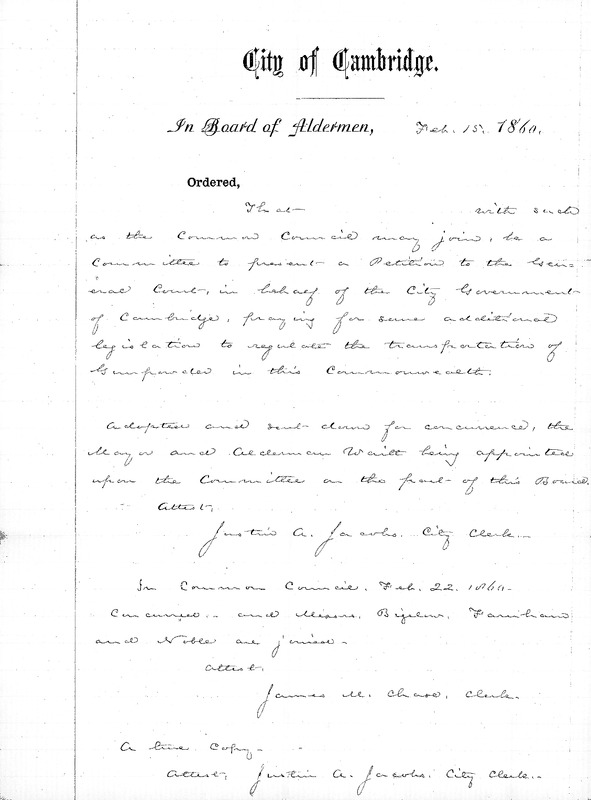 City of Cambridge.
In Board of Aldermen, Feb. 15. 1860.
Ordered,
That with such
as the Common Council may join, be a
Committee to present a Petition to the Gen-
eral Court, in behalf of the City Government
of Cambridge, praying for some additional
legislation to regulate the transportation of
Gunpowder in this Commonwealth.
Adopted and sent down for concurrence, the
Mayor and Alderman Waitt being appointed
upon the Committee on the part of this Board.
Attest,
Justin A. Jacobs. City Clerk.
In Common Council. Feb. 22. 1860.
Concurred. and Messrs. Bigelow, Farnham
and Noble are joined.
Attest.
James M. Chase, Clerk.
A true Copy.
Attest, Justin A. Jacobs. City Clerk.